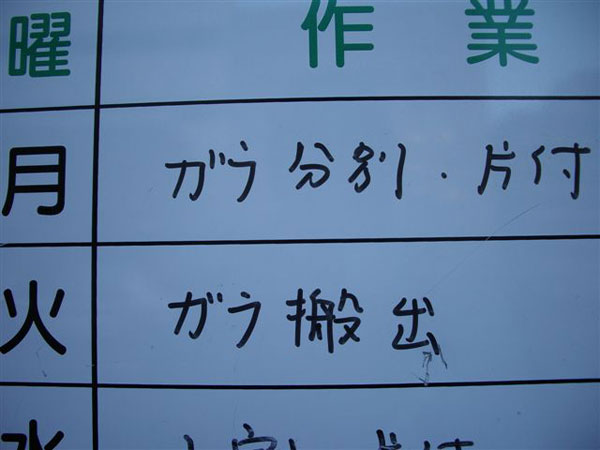 曜 作業
月 ガラ分別・片付
火 ガラ搬出
水